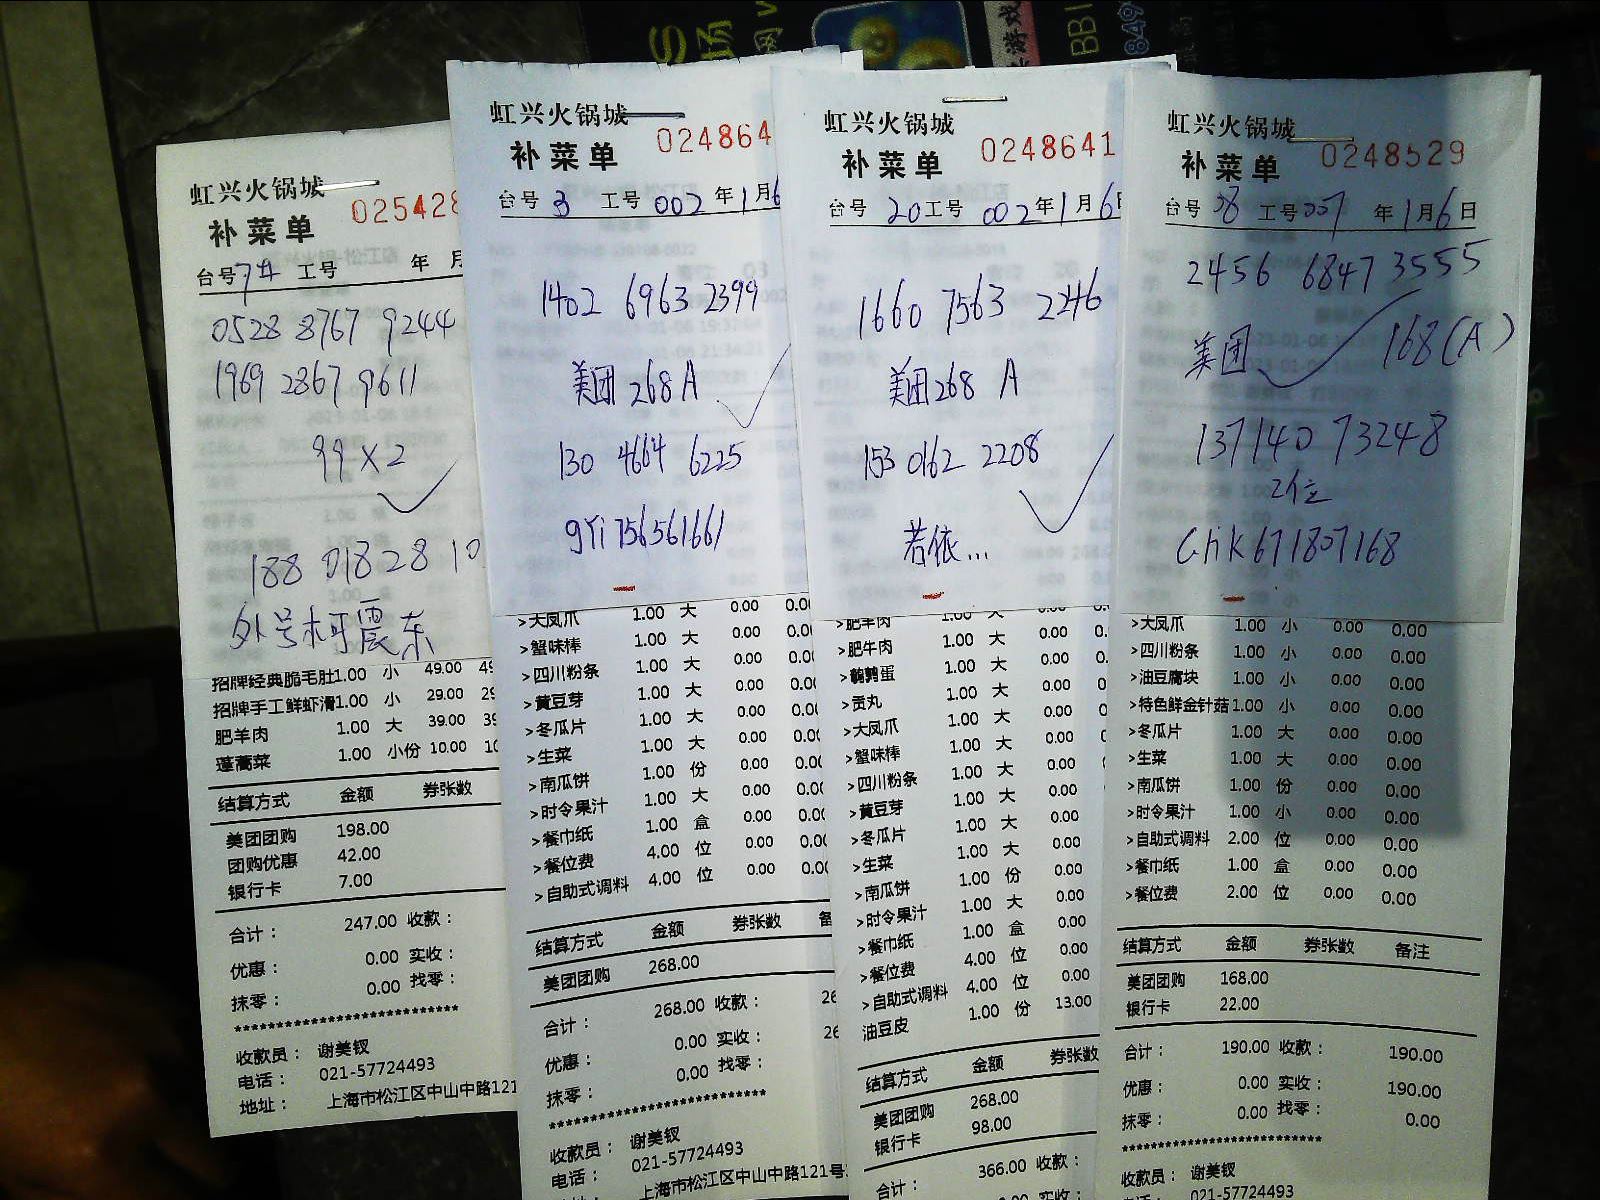 虹兴火锅城
补菜单
025428
台号 工号 年 月
0528 8767 9244
1969 2867 9611
99×2
188 018 28 10
外号柯震东
招牌经典脆毛肚 1.00 小 49.00
招牌手工鲜虾滑 1.00 小 29.00
肥羊肉 1.00 大 39.00
蓬蒿菜 1.00 小份 10.00
结算方式 金额 券张数
美团团购 198.00
团购优惠 42.00
银行卡 7.00
合计： 247.00 收款：
优惠： 0.00 实收：
抹零： 0.00 找零：
**************************
收款员： 谢美钗
电话： 021-57724493
地址： 上海市松江区中山中路121
虹兴火锅城
补菜单
024864
台号 3 工号 002 年1月6
1402 6963 2399
美团268A
130 4664 6225
gYi 756561661
>大凤爪 1.00 大 0.00 0.00
>蟹味棒 1.00 大 0.00 0.00
>四川粉条 1.00 大 0.00 0.00
>黄豆芽 1.00 大 0.00 0.00
>冬瓜片 1.00 大 0.00 0.00
>生菜 1.00 大 0.00 0.00
>南瓜饼 1.00 份 0.00 0.00
>时令果汁 1.00 大 0.00 0.00
>餐巾纸 1.00 盒 0.00 0.00
>餐位费 4.00 位 0.00 0.00
>自助式调料 4.00 位 0.00 0.00
结算方式 金额 券张数
美团团购 268.00
合计： 268.00 收款：
优惠： 0.00 实收：
抹零： 0.00 找零：
**************************
收款员： 谢美钗
电话： 021-57724493
上海市松江区中山中路121号
虹兴火锅城
补菜单
0248641
台号 20 工号 002 年1月6日
1660 7563 2246
美团268 A
153 0162 2208
若依...
>肥羊肉 1.00 大 0.00
>肥牛肉 1.00 大 0.00
>鹌鹑蛋 1.00 大 0.00
>贡丸 1.00 大 0.00
>大凤爪 1.00 大 0.00
>蟹味棒 1.00 大 0.00
>四川粉条 1.00 大 0.00
>黄豆芽 1.00 大 0.00
>冬瓜片 1.00 大 0.00
>生菜 1.00 大 0.00
>南瓜饼 1.00 份 0.00
>时令果汁 1.00 大 0.00
>餐巾纸 1.00 盒 0.00
>餐位费 4.00 位 0.00
>自助式调料 4.00 位 0.00
油豆皮 1.00 份 13.00
结算方式 金额 券张数
美团团购 268.00
银行卡 98.00
合计： 366.00 收款：
虹兴火锅城
补菜单
0248529
台号 38 工号 007 年1月6日
2456 6847 3555
美团 168(A)
137140 73248
2位
Chk671807168
>大凤爪 1.00 小 0.00 0.00
>四川粉条 1.00 小 0.00 0.00
>油豆腐块 1.00 小 0.00 0.00
>特色鲜金针菇 1.00 小 0.00 0.00
>冬瓜片 1.00 大 0.00 0.00
>生菜 1.00 大 0.00 0.00
>南瓜饼 1.00 份 0.00 0.00
>时令果汁 1.00 小 0.00 0.00
>自助式调料 2.00 位 0.00 0.00
>餐巾纸 1.00 盒 0.00 0.00
>餐位费 2.00 位 0.00 0.00
结算方式 金额 券张数 备注
美团团购 168.00
银行卡 22.00
合计： 190.00 收款： 190.00
优惠： 0.00 实收： 190.00
抹零： 0.00 找零： 0.00
**************************
收款员： 谢美钗
电话： 021-57724493